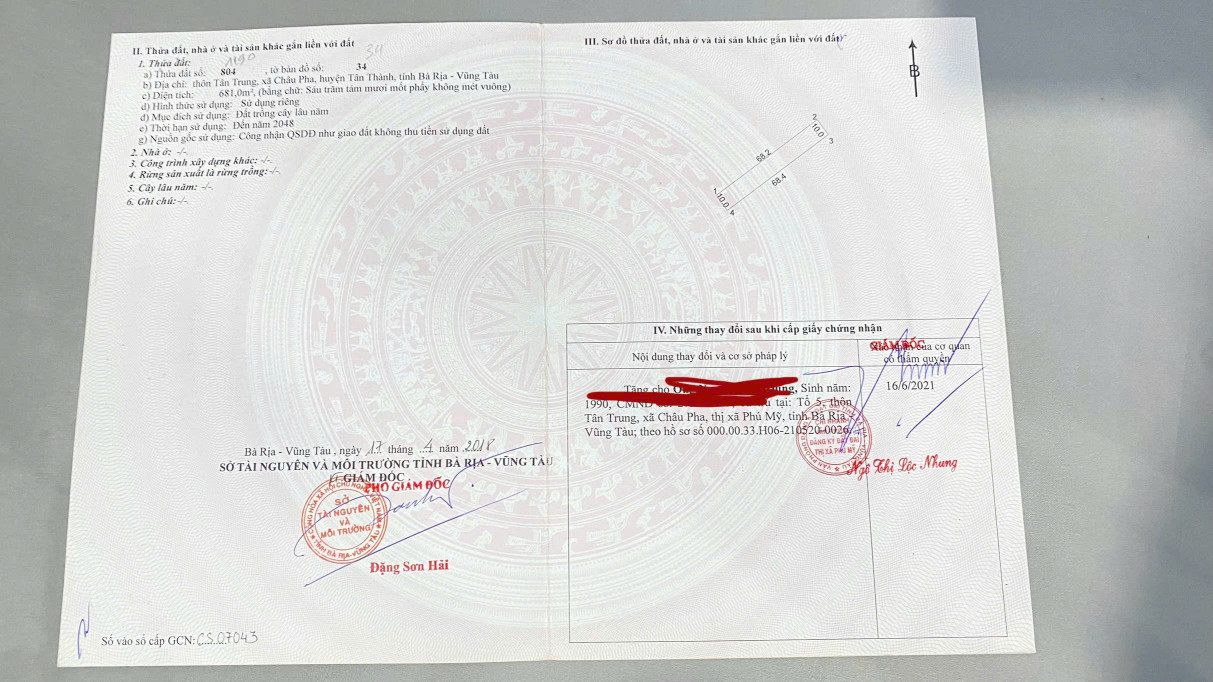 II. Thửa đất, nhà ở và tài sản khác gắn liền với đất
1. Thửa đất: 1190 34
a) Thửa đất số: 804 , tờ bản đồ số: 34
b) Địa chỉ: thôn Tân Trung, xã Châu Pha, huyện Tân Thành, tỉnh Bà Rịa - Vũng Tàu
c) Diện tích: 681,0m², (bằng chữ: Sáu trăm tám mươi mốt phẩy không mét vuông)
d) Hình thức sử dụng: Sử dụng riêng
đ) Mục đích sử dụng: Đất trồng cây lâu năm
e) Thời hạn sử dụng: Đến năm 2048
g) Nguồn gốc sử dụng: Công nhận QSDĐ như giao đất không thu tiền sử dụng đất
2. Nhà ở: -/-.
3. Công trình xây dựng khác: -/-.
4. Rừng sản xuất là rừng trồng:-/-.
5. Cây lâu năm: -/-.
6. Ghi chú:-/-.
Bà Rịa - Vũng Tàu , ngày 17 tháng 4 năm 2018
SỞ TÀI NGUYÊN VÀ MÔI TRƯỜNG TỈNH BÀ RỊA - VŨNG TÀU
GIÁM ĐỐC
PHÓ GIÁM ĐỐC
CỘNG HÒA XÃ HỘI CHỦ NGHĨA VIỆT NAM
SỞ
TÀI NGUYÊN
VÀ
MÔI TRƯỜNG
TỈNH BÀ RỊA-VŨNG TÀU
Đặng Sơn Hải
Số vào sổ cấp GCN: CS 07043
III. Sơ đồ thửa đất, nhà ở và tài sản khác gắn liền với đất
B
2
10.0
3
68.2
68.4
1
10.0
4
IV. Những thay đổi sau khi cấp giấy chứng nhận
Nội dung thay đổi và cơ sở pháp lý
của cơ quan
có thẩm quyền
GIÁM ĐỐC
Tặng cho Sinh năm:
1990, CMND tại: Tổ 5, thôn
Tân Trung, xã Châu Pha, thị xã Phú Mỹ, tỉnh Bà Rịa -
Vũng Tàu; theo hồ sơ số 000.00.33.H06-210520-0026.
16/6/2021
CHI NHÁNH
ĐĂNG KÝ ĐẤT ĐAI
THỊ XÃ PHÚ MỸ
Ngô Thị Lộc Nhung